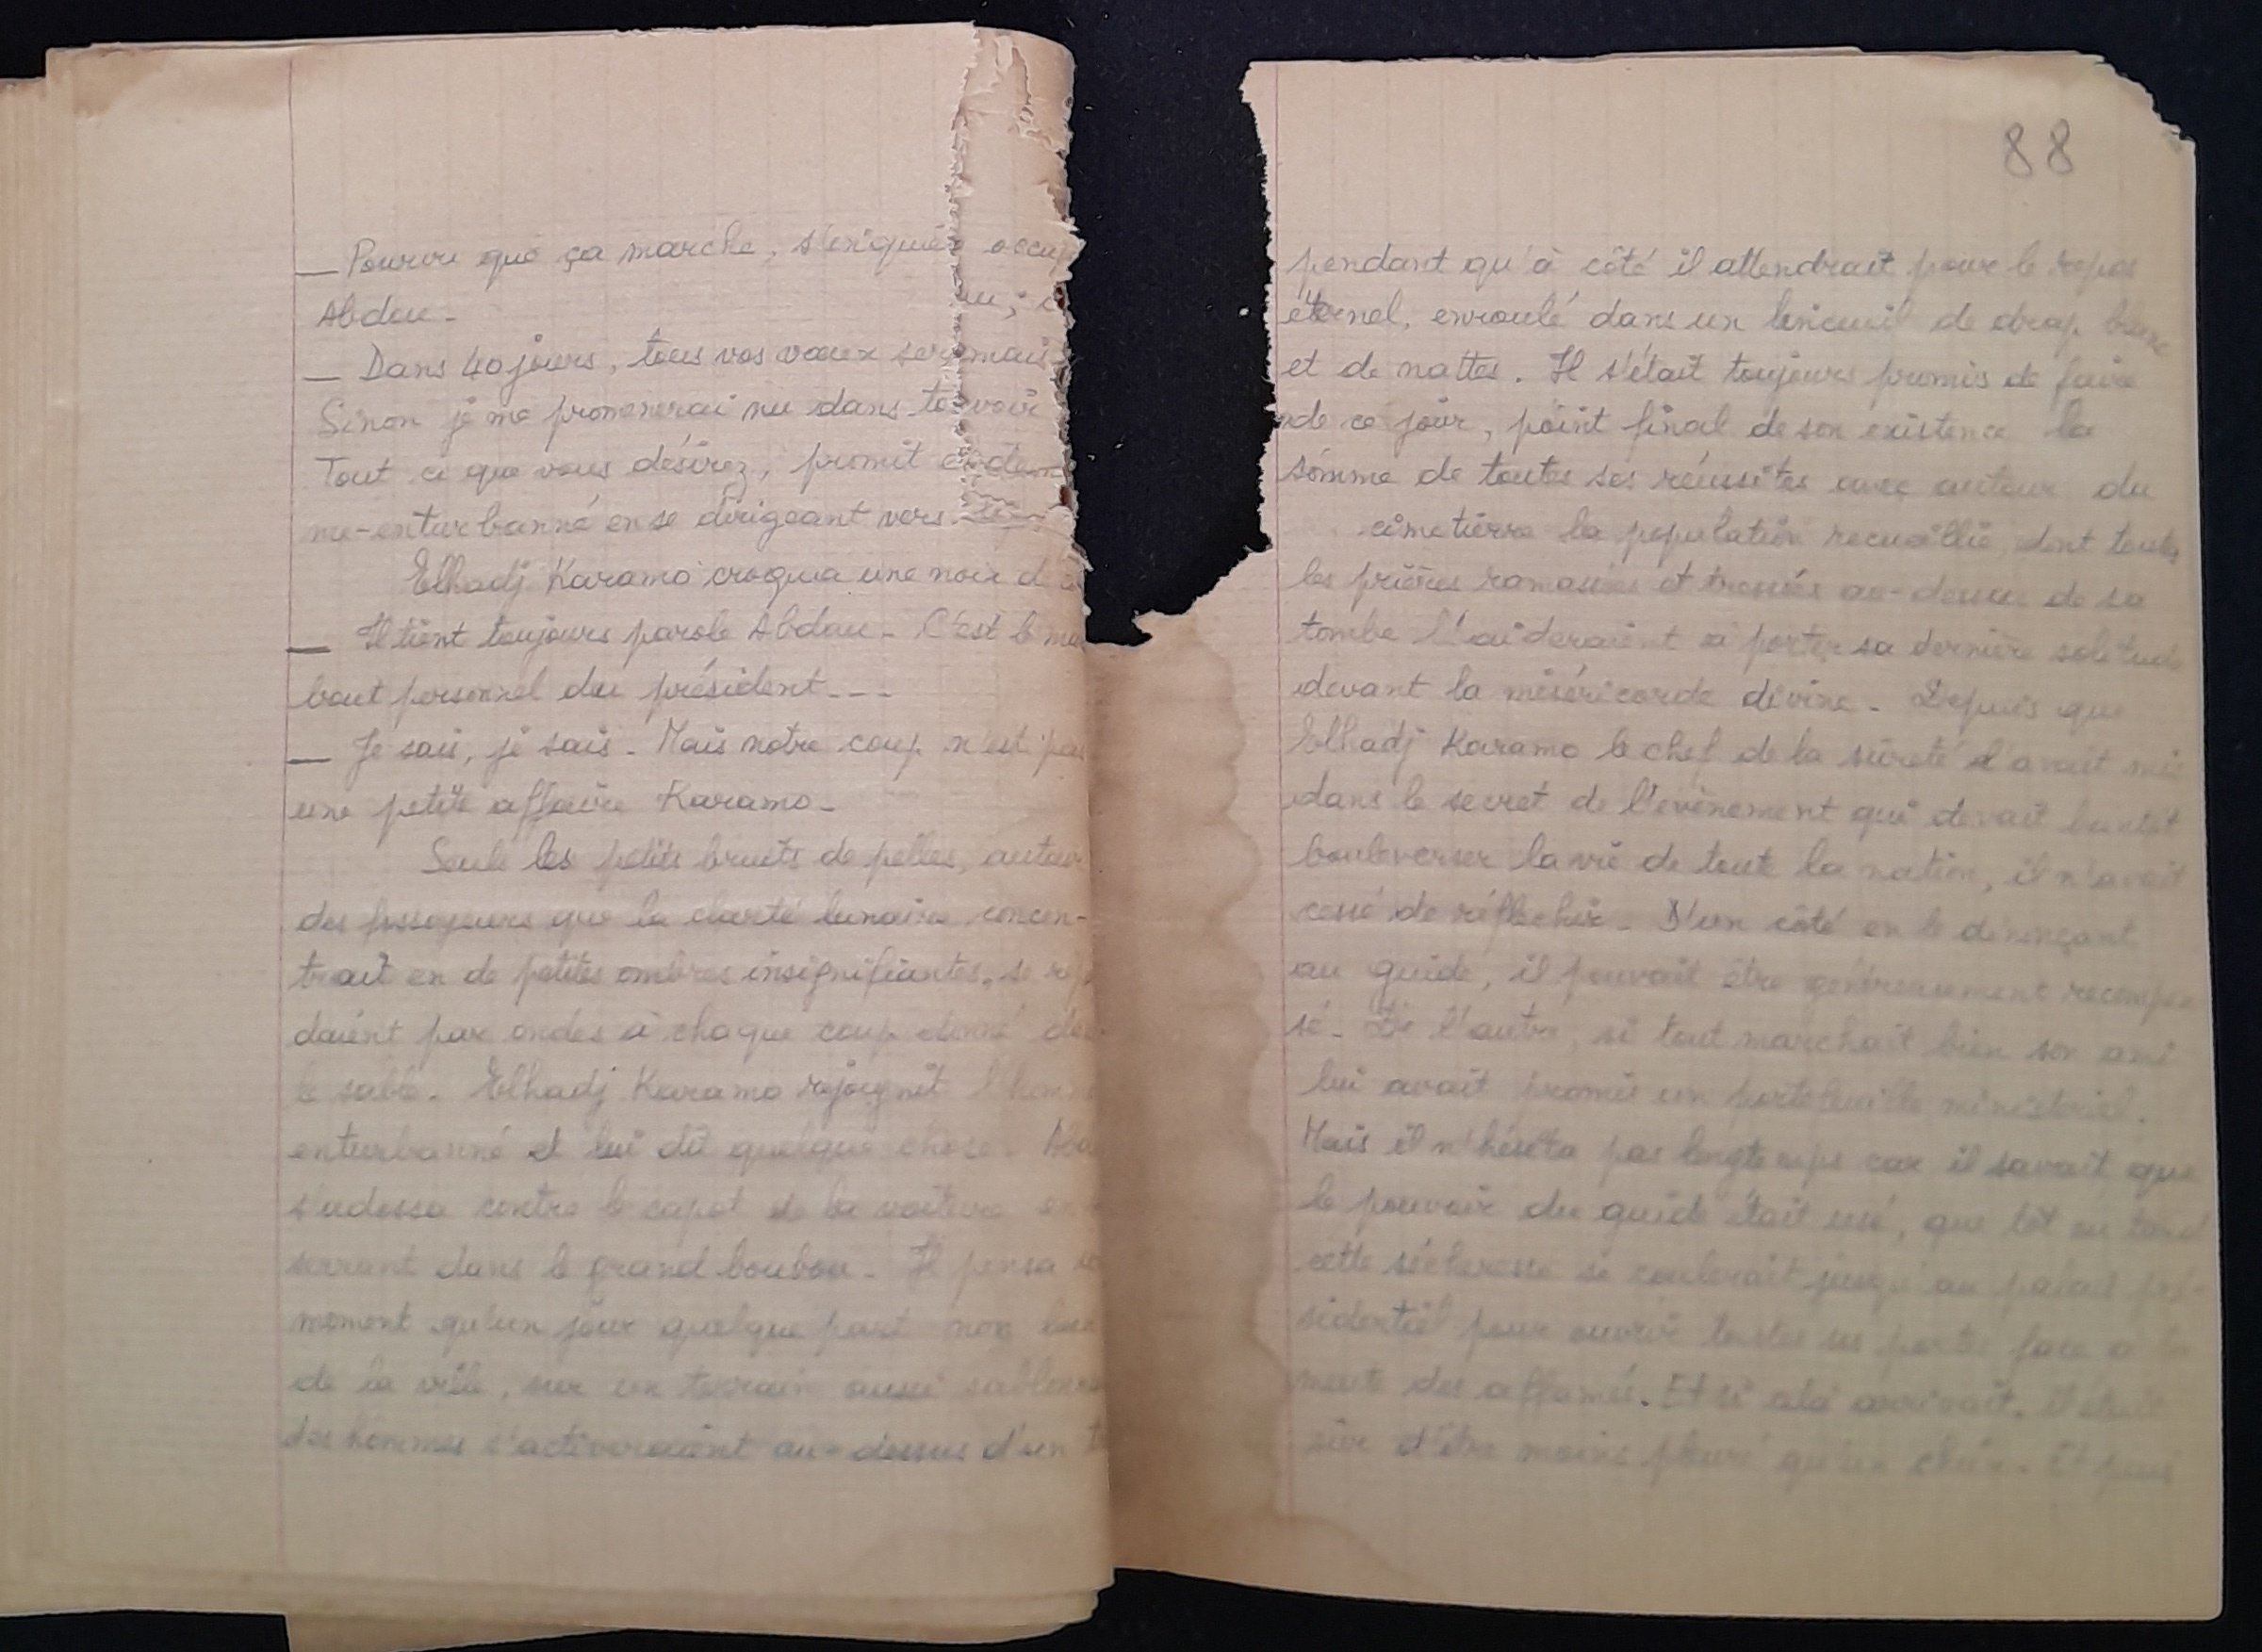 — Pourvu que ça marche, s'enquié occup
Abdou.
nu ; c
— Dans 40 jours, tous vos vœux ser mais
Sinon je me promènerai nu dans to voir
Tout ce que vous désirez, promit
me-enturbanné en se dirigeant vers
Elhadj Karamo croqua une noix d
— Il tient toujours parole Abdou. C'est le ma
bout personnel du président...
— Je sais, je sais. Mais notre coup n'est pas
une petite affaire Karamo.
Seuls les petits bruits de pelles, autour
des fossoyeurs que la clarté lunaire concen-
trait en de petites ombres insignifiantes, se ré
daient par ondes à chaque coup donné da
le sable. Elhadj Karamo rejoignit l'hom
enturbanné et lui dit quelque chose. Abd
s'adossa contre le capot de la voiture en
serrant dans le grand boubou. Il pensa
moment qu'un jour quelque part non loin
de la ville, sur un terrain aussi sablon
des hommes s'activeraient au-dessus d'un t
88
pendant qu'à côté il attendrait pour le repos
éternel, enroulé dans un linceuil de drap blanc
et de nattes. Il s'était toujours promis de faire
de ce jour, point final de son existence la
somme de toutes ses réussites avec autour du
cimetière la population recueillie, dont toutes
les prières ramassées et tressées au-dessus de sa
tombe l'aideraient à porter sa dernière solitude
devant la miséricorde divine. Depuis que
Elhadj Karamo le chef de la sûreté l'avait mis
dans le secret de l'évènement qui devait bientôt
bouleverser la vie de toute la nation, il n'avait
cessé de réfléchir. D'un côté en le dénonçant
au guide, il pouvait être généreusement récompen
sé. De l'autre, si tout marchait bien son ami
lui avait promis un portefeuille ministériel.
Mais il n'hésita pas longtemps car il savait que
le pouvoir du guide était usé, que tôt ou tard
cette sécheresse se coulerait jusqu'au palais pré-
sidentiel pour ouvrir toutes ses portes face à la
meute des affamés. Et si cela arrivait, il était
sûr d'être moins pleuré qu'un chien. Et puis